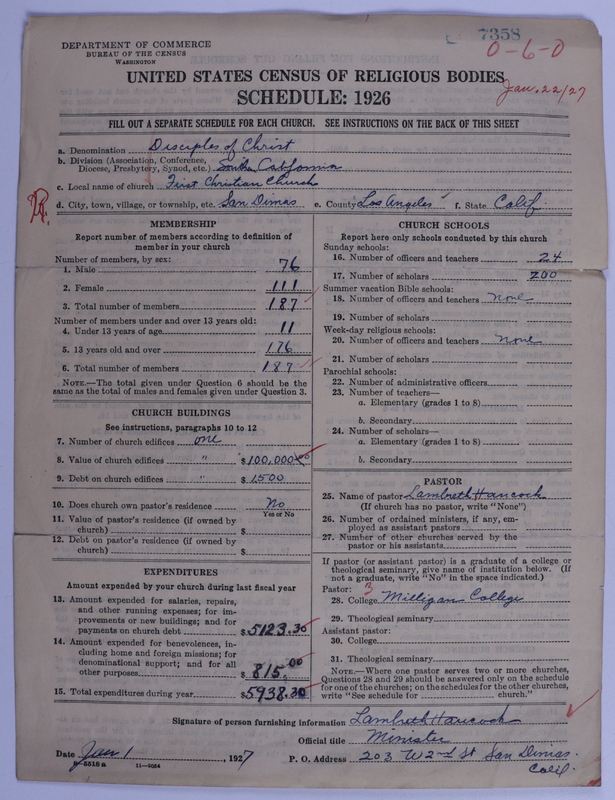 7358
0-6-0
DEPARTMENT OF COMMERCE
BUREAU OF THE CENSUS
WASHINGTON
UNITED STATES CENSUS OF RELIGIOUS BODIES
Jan. 22/27
SCHEDULE: 1926
FILL OUT A SEPARATE SCHEDULE FOR EACH CHURCH. SEE INSTRUCTIONS ON THE BACK OF THIS SHEET
a. Denomination Disciples of Christ
b. Division (Association, Conference,
Diocese, Presbytery, Synod, etc.) South California
c. Local name of church First Christian Church
d. City, town, village, or township, etc. San Dimas e. County Los Angeles f. State Calif.
MEMBERSHIP
Report number of members according to definition of
member in your church
Number of members, by sex:
1. Male 76
2. Female 111
3. Total number of members 187
Number of members under and over 13 years old:
4. Under 13 years of age 11
5. 13 years old and over 176
6. Total number of members 187
NOTE.—The total given under Question 6 should be the
same as the total of males and females given under Question 3.
CHURCH BUILDINGS
See instructions, paragraphs 10 to 12
7. Number of church edifices one
8. Value of church edifices " $100,000.00
9. Debt on church edifices " $1500
10. Does church own pastor's residence No
Yes or No
11. Value of pastor's residence (if owned by
church) $
12. Debt on pastor's residence (if owned by
church) $
EXPENDITURES
Amount expended by your church during last fiscal year
13. Amount expended for salaries, repairs,
and other running expenses; for im-
provements or new buildings; and for
payments on church debt $5123.30
14. Amount expended for benevolences, in-
cluding home and foreign missions; for
denominational support; and for all
other purposes $815.00
15. Total expenditures during year $5938.30
CHURCH SCHOOLS
Report here only schools conducted by this church
Sunday schools:
16. Number of officers and teachers 24
17. Number of scholars 200
Summer vacation Bible schools:
18. Number of officers and teachers none
19. Number of scholars
Week-day religious schools:
20. Number of officers and teachers none
21. Number of scholars
Parochial schools:
22. Number of administrative officers
23. Number of teachers—
a. Elementary (grades 1 to 8)
b. Secondary
24. Number of scholars—
a. Elementary (grades 1 to 8)
b. Secondary
PASTOR
25. Name of pastor Lambreth Hancock
(If church has no pastor, write "None")
26. Number of ordained ministers, if any, em-
ployed as assistant pastors
27. Number of other churches served by the
pastor or his assistants
If pastor (or assistant pastor) is a graduate of a college or
theological seminary, give name of institution below. (If
not a graduate, write "No" in the space indicated.)
Pastor: 3
28. College Milligan College
29. Theological seminary
Assistant pastor:
30. College
31. Theological seminary
NOTE.—Where one pastor serves two or more churches,
Questions 28 and 29 should be answered only on the schedule
for one of the churches; on the schedules for the other churches,
write "See schedule for church."
Signature of person furnishing information Lambreth Hancock
Official title Minister
Date Jan 1, 1927 P. O. Address 203 W 2nd St San Dimas.
Calif.
8-5518a 11-9034